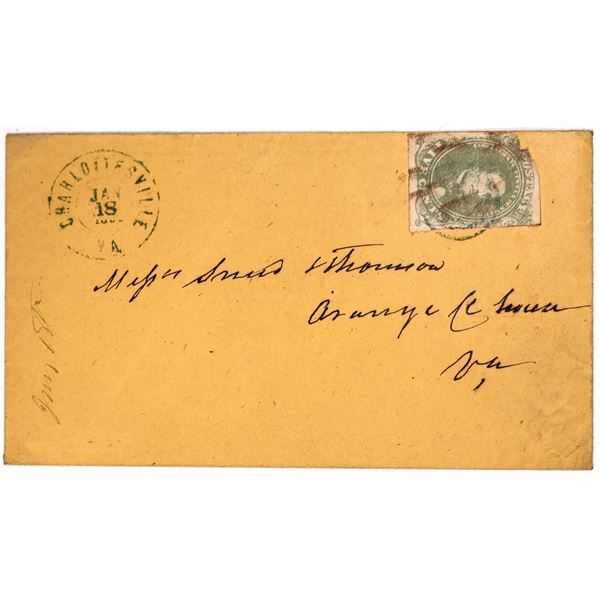 CHARLOTTESVILLE
JAN
18
VA.
Mess Sneed & Thomson
Orange Ct house
Va,